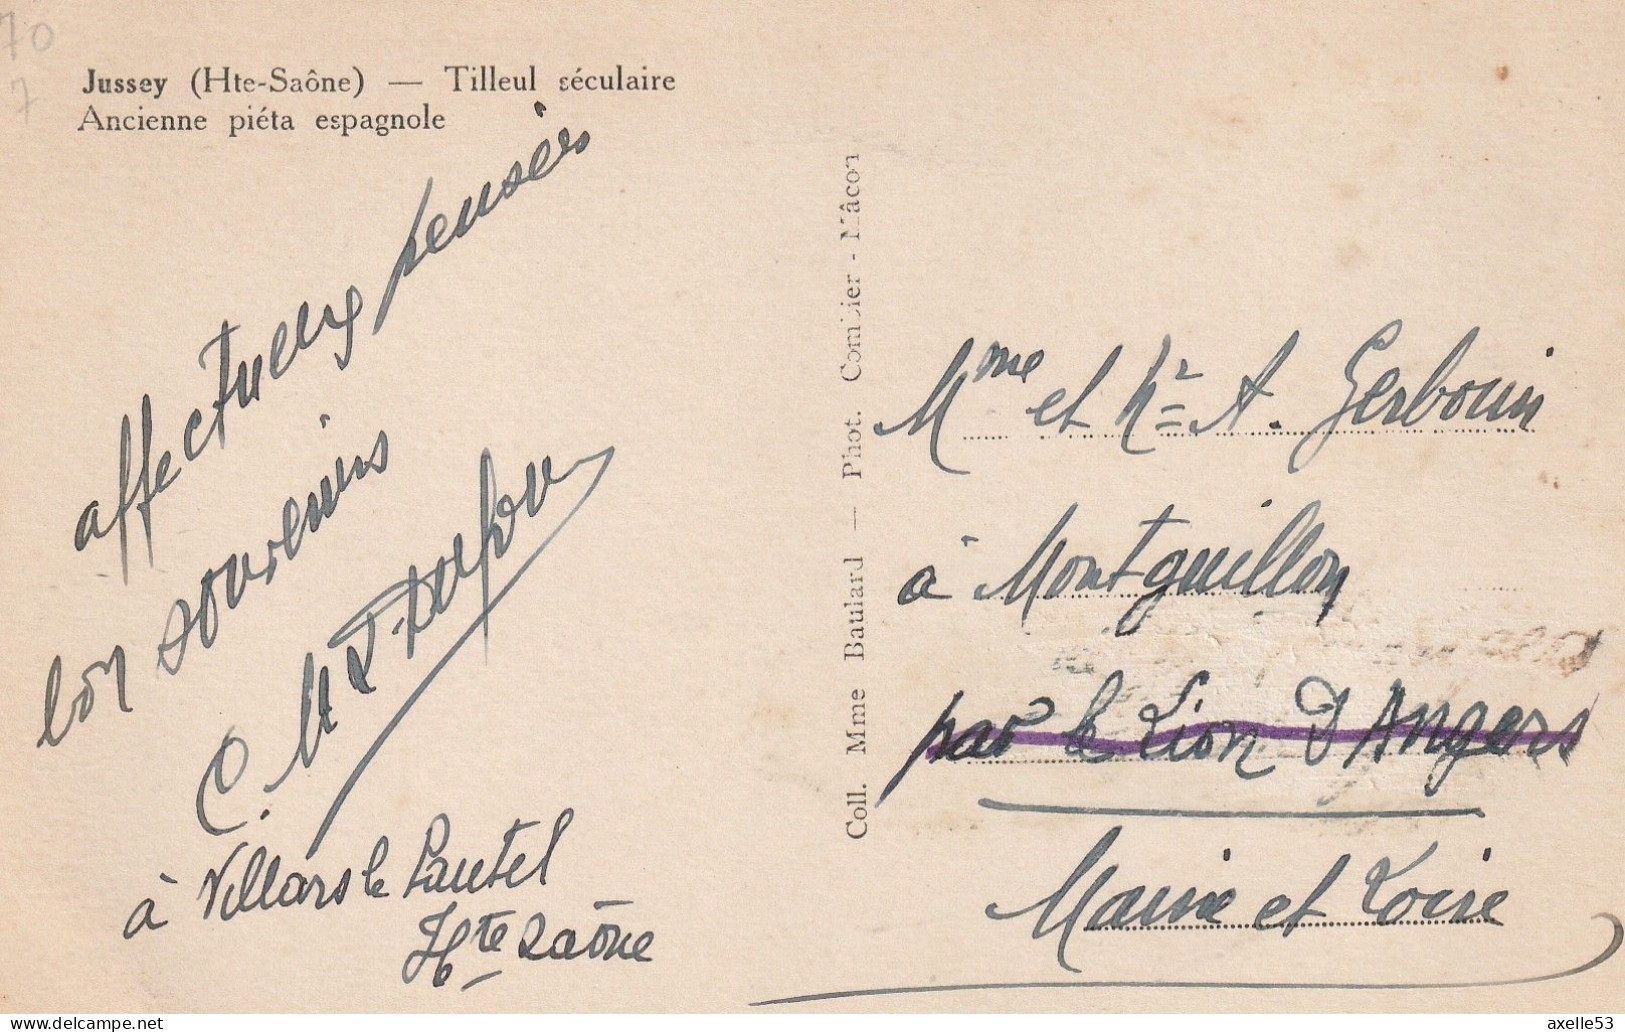 70
7
Jussey (Hte-Saône) — Tilleul séculaire
Ancienne piéta espagnole
affectueux pensées
bon souvenirs
à Villars le Pautel
Hte Saône
Coll. Mme Baulard — Phot. Combier - Mâcon
Mme et Mr A. Gerbouin
à Montguillon
par le Lion d'Angers
Maine et Loire
© www.delcampe.net
axelle53